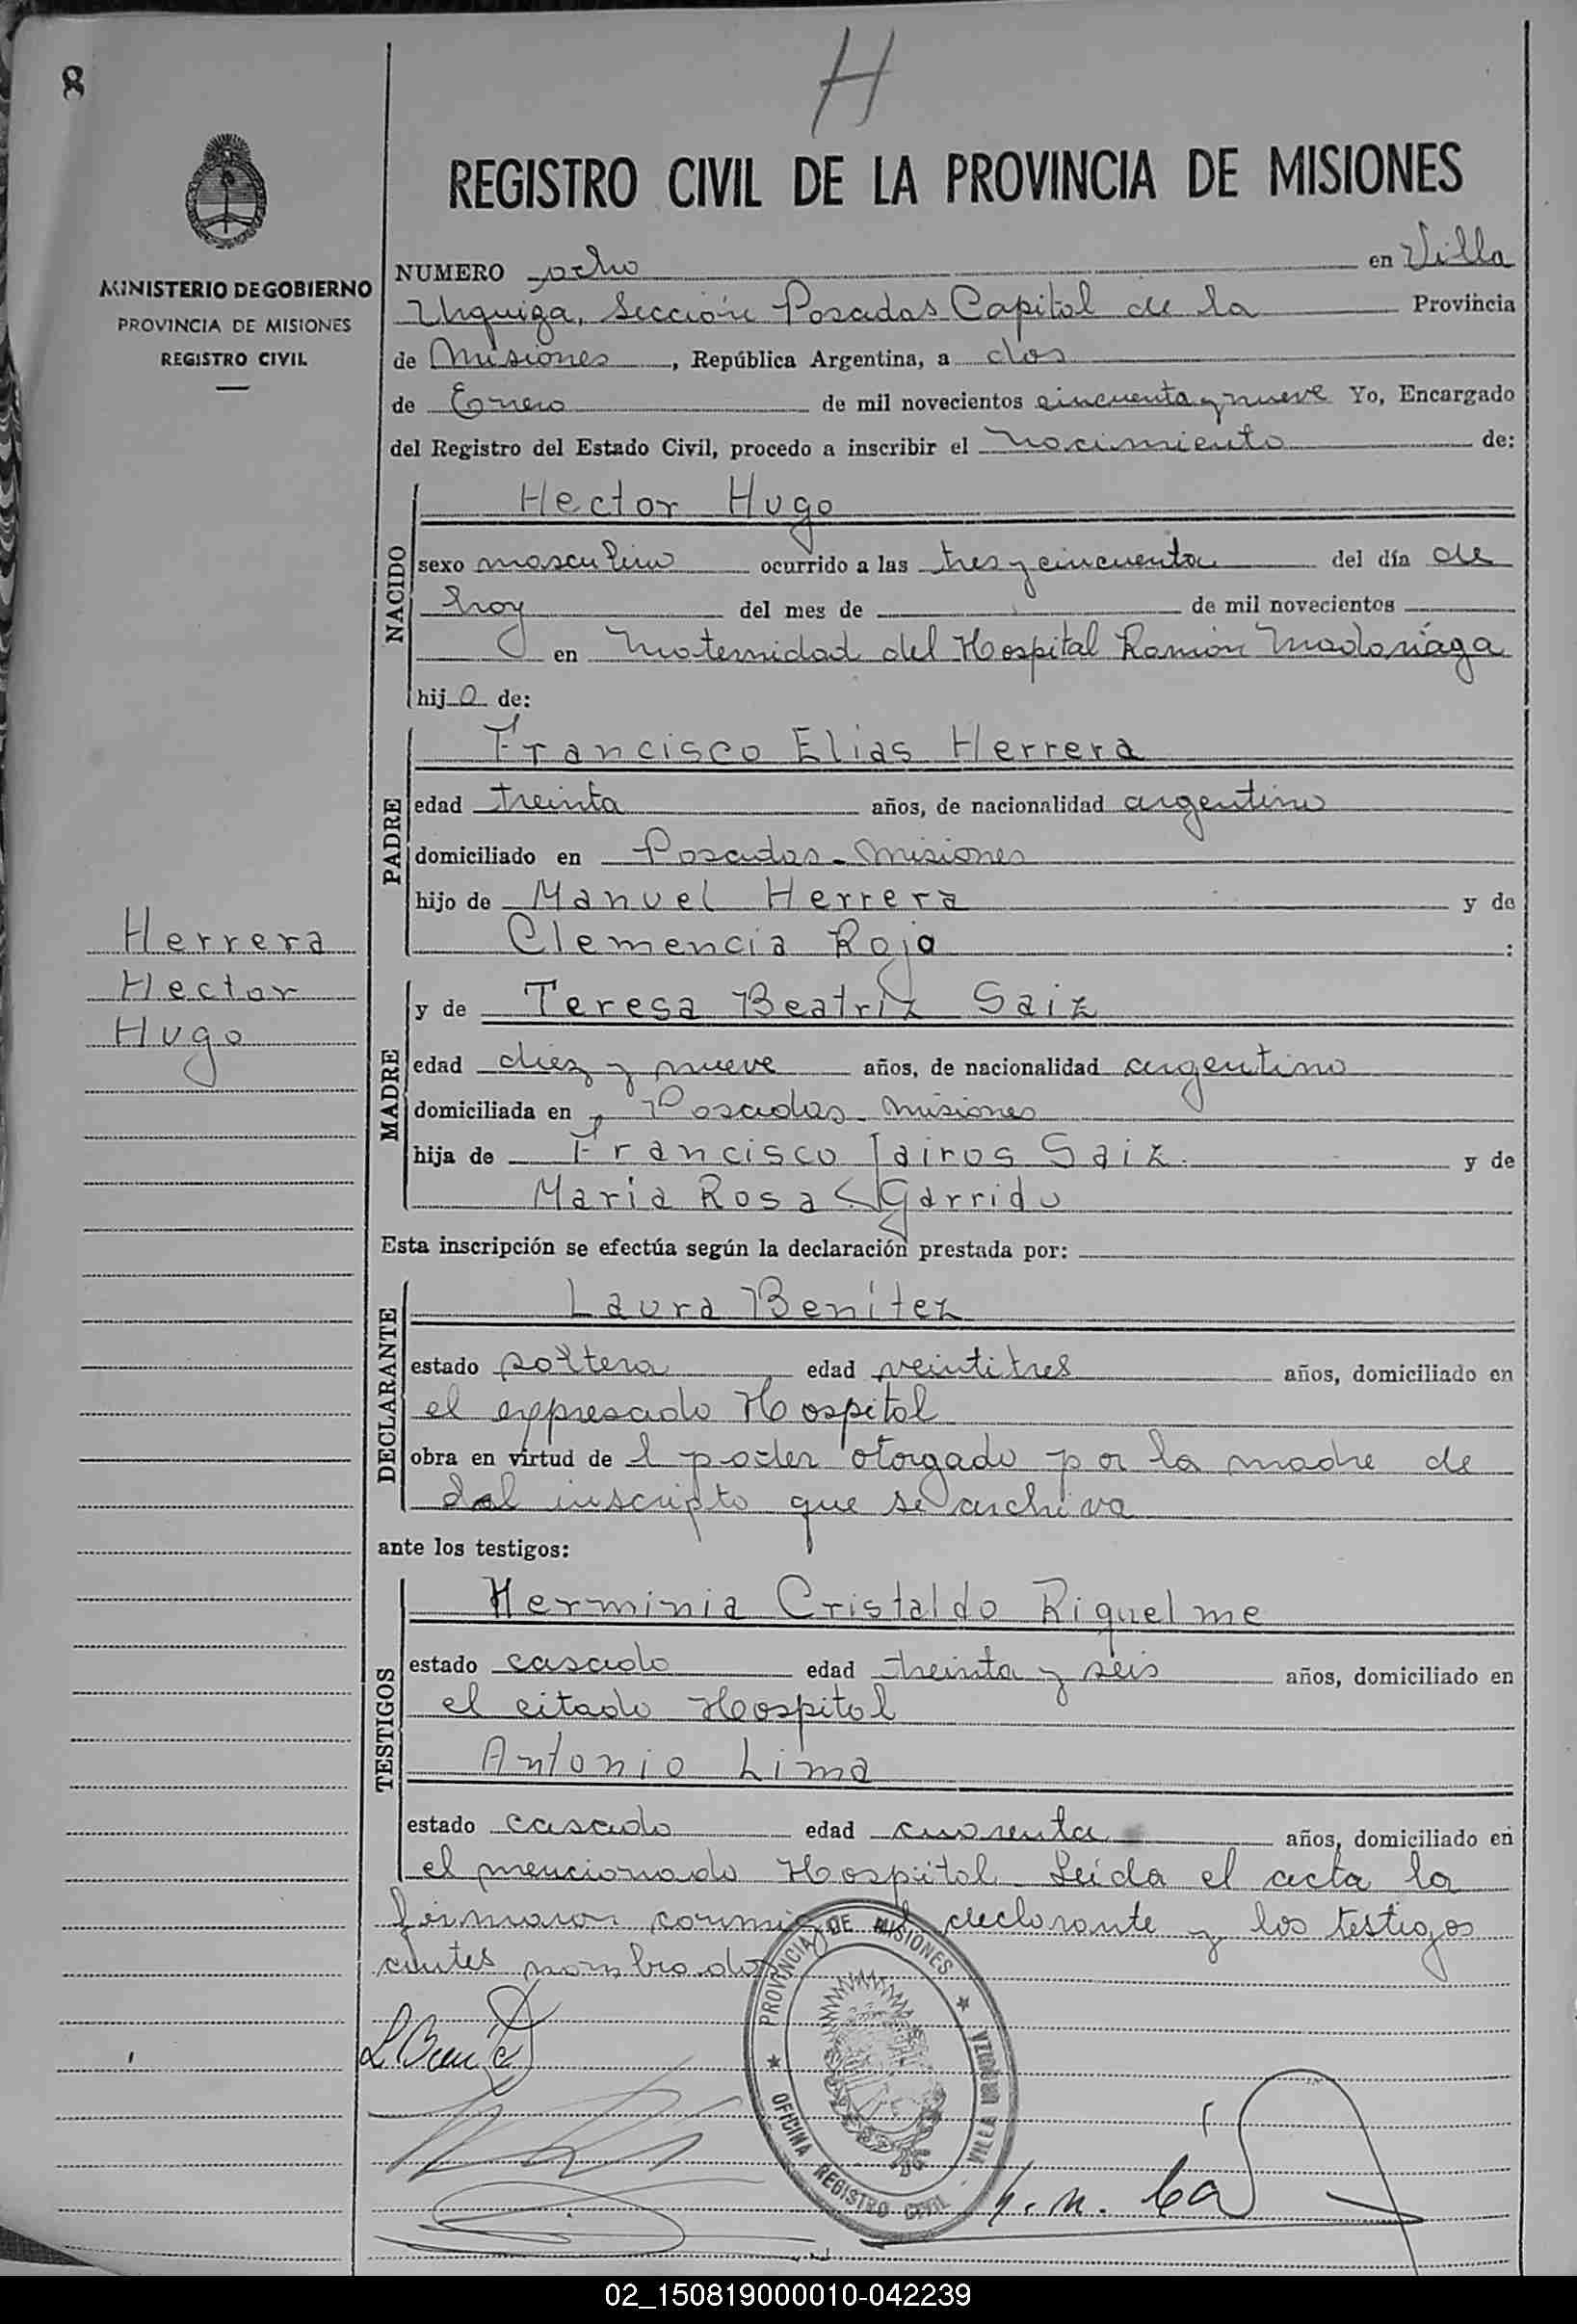 8
H
MINISTERIO DE GOBIERNO
PROVINCIA DE MISIONES
REGISTRO CIVIL
REGISTRO CIVIL DE LA PROVINCIA DE MISIONES
NUMERO ocho en Villa
Urquiza, Sección Posadas Capital de la Provincia
de Misiones, República Argentina, a dos
de Enero de mil novecientos cincuenta y nueve Yo, Encargado
del Registro del Estado Civil, procedo a inscribir el nacimiento de:
NACIDO
Hector Hugo
sexo masculino ocurrido a las tres y cincuenta del día de
hoy del mes de de mil novecientos
en Maternidad del Hospital Ramón Madariaga
hijo de:
PADRE
Francisco Elias Herrera
edad treinta años, de nacionalidad argentino
domiciliado en Posadas - Misiones
hijo de Manuel Herrera y de
Clemencia Roja :
Herrera
Hector
Hugo
MADRE
y de Teresa Beatriz Saiz
edad diez y nueve años, de nacionalidad argentino
domiciliada en Posadas - Misiones
hija de Francisco Jairos Saiz y de
Maria Rosa Garrido
Esta inscripción se efectúa según la declaración prestada por:
DECLARANTE
Laura Benitez
estado soltera edad veintitres años, domiciliado en
el expresado Hospital
obra en virtud del poder otorgado por la madre de
del inscripto que se archiva
ante los testigos:
TESTIGOS
Herminia Cristaldo Riquelme
estado casado edad treinta y seis años, domiciliado en
el citado Hospital
Antonio Lima
estado casado edad cuarenta años, domiciliado en
el mencionado Hospital. Leida el acta la
firmaron conmigo el declarante y los testigos
antes nombrados
PROVINCIA DE MISIONES
VILLA URQUIZA
OFICINA REGISTRO CIVIL
02_150819000010-042239